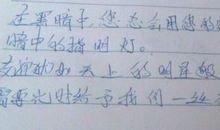 在黑暗中，您总会用您的
暗中的指明灯。
天上的明星般
需要之时给予我们一丝